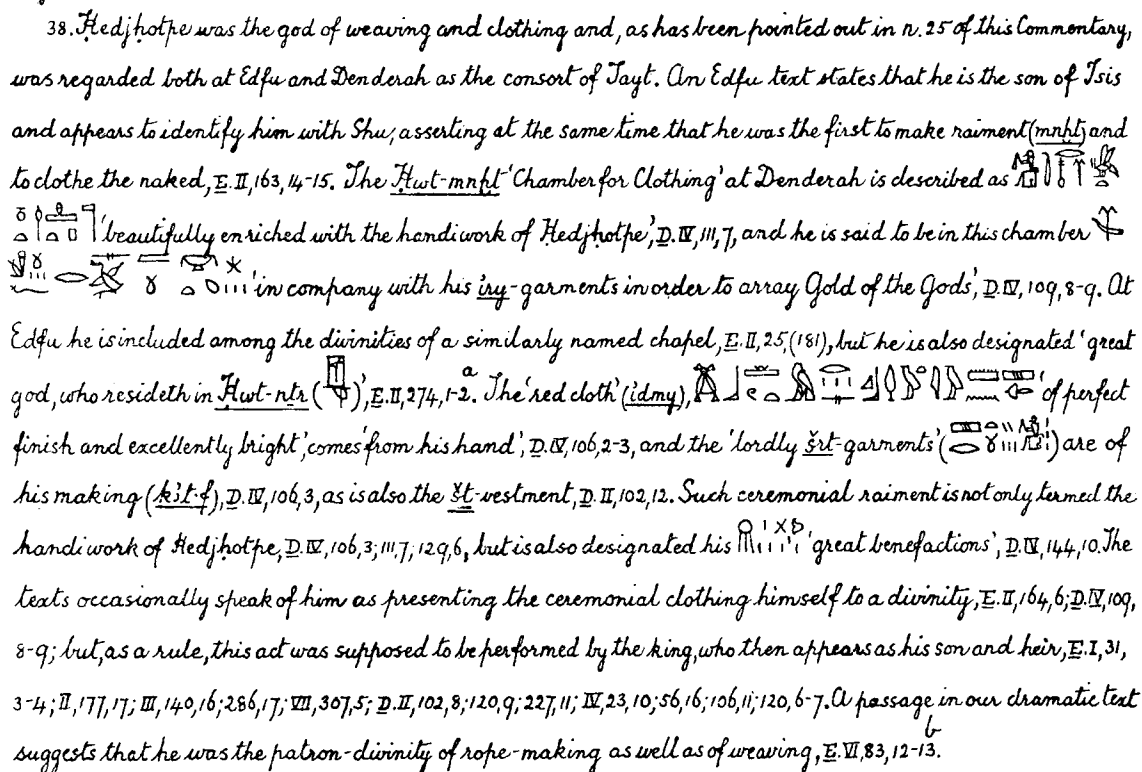 38. Ḥedjḥotpe was the god of weaving and clothing and, as has been pointed out in n. 25 of this Commentary,
was regarded both at Edfu and Denderah as the consort of Tayt. An Edfu text states that he is the son of Isis
and appears to identify him with Shu, asserting at the same time that he was the first to make raiment (mnḫt) and
to clothe the naked, E. II, 163, 14-15. The Ḥwt-mnḫt 'Chamber for Clothing' at Denderah is described as
'beautifully enriched with the handiwork of Hedjḥotpe', D. IV, 111, 7, and he is said to be in this chamber
'in company with his iry-garments in order to array Gold of the Gods', D. IV, 109, 8-9. At
Edfu he is included among the divinities of a similarly named chapel, E. II, 25, (181), but he is also designated 'great
god, who resideth in Ḥwt-nṯr ( )', E. II, 274, 1-2.ᵃ The 'red cloth' (idmy), 'of perfect
finish and excellently bright', comes 'from his hand', D. IV, 106, 2-3, and the 'lordly šrt-garments' ( ) are of
his making (kꜣt·f), D. IV, 106, 3, as is also the št-vestment, D. II, 102, 12. Such ceremonial raiment is not only termed the
handiwork of Hedjḥotpe, D. IV, 106, 3; 111, 7; 129, 6, but is also designated his 'great benefactions', D. IV, 144, 10. The
texts occasionally speak of him as presenting the ceremonial clothing himself to a divinity, E. II, 164, 6; D. IV, 109,
8-9; but, as a rule, this act was supposed to be performed by the king, who then appears as his son and heir, E. I, 31,
3-4; II, 177, 17; III, 140, 16; 286, 17; VII, 307, 5; D. II, 102, 8; 120, 9; 227, 11; IV, 23, 10; 56, 16; 106, 11; 120, 6-7. A passage in our dramatic text
suggests that he was the patron-divinity of rope-making as well as of weaving, E. VI, 83, 12-13.ᵇ